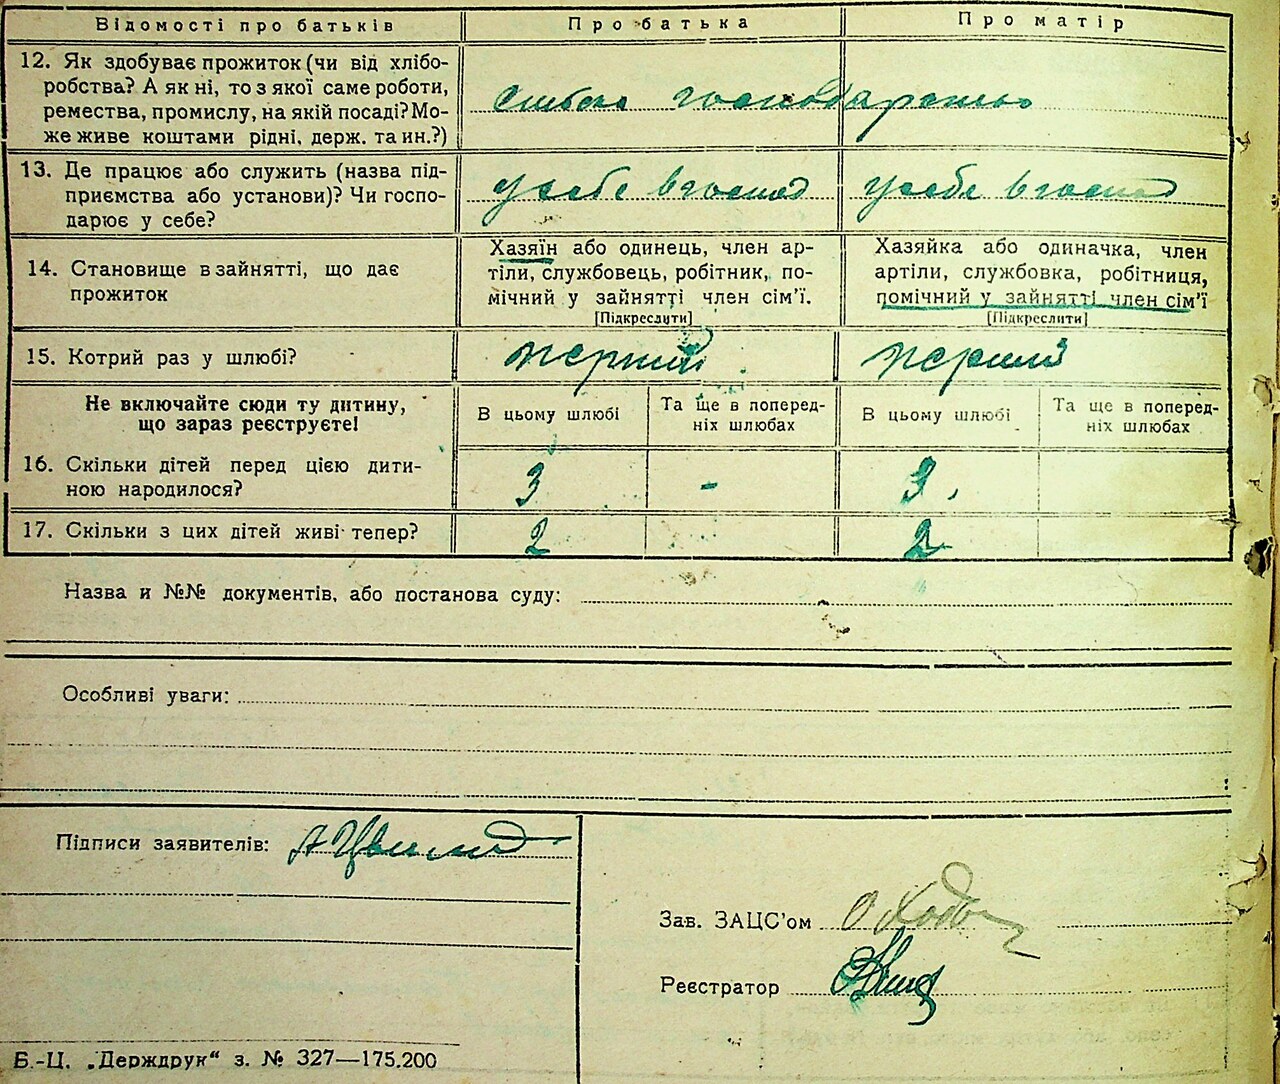 Відомості про батьків
Про батька
Про матір
12. Як здобуває прожиток (чи від хлібо-
робства? А як ні, то з якої саме роботи,
ремества, промислу, на якій посаді? Мо-
же живе коштами рідні, держ. та ин.?)
господарством
13. Де працює або служить (назва під-
приємства або установи)? Чи госпо-
дарює у себе?
у себе в господ
у себе в господ
14. Становище в зайнятті, що дає
прожиток
Хазяїн або одинець, член ар-
тіли, службовець, робітник, по-
мічний у зайнятті член сім'ї.
[Підкреслити]
Хазяйка або одиначка, член
артіли, службовка, робітниця,
помічний у зайнятті член сім'ї
[Підкреслити]
15. Котрий раз у шлюбі?
перший
перший
Не включайте сюди ту дитину,
що зараз реєструєте!
В цьому шлюбі
Та ще в поперед-
ніх шлюбах
В цьому шлюбі
Та ще в поперед-
ніх шлюбах
16. Скільки дітей перед цією дити-
ною народилося?
3
-
3
17. Скільки з цих дітей живі тепер?
2
2
Назва и №№ документів, або постанова суду:
Особливі уваги:
Підписи заявителів:
Зав. ЗАЦС'ом
Реєстратор
Б.-Ц. „Держдрук“ з. № 327—175.200